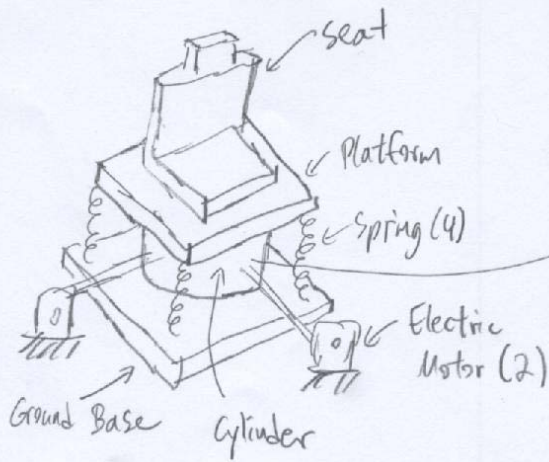 seat
Platform
Spring (4)
Electric
Motor (2)
Ground Base
Cylinder